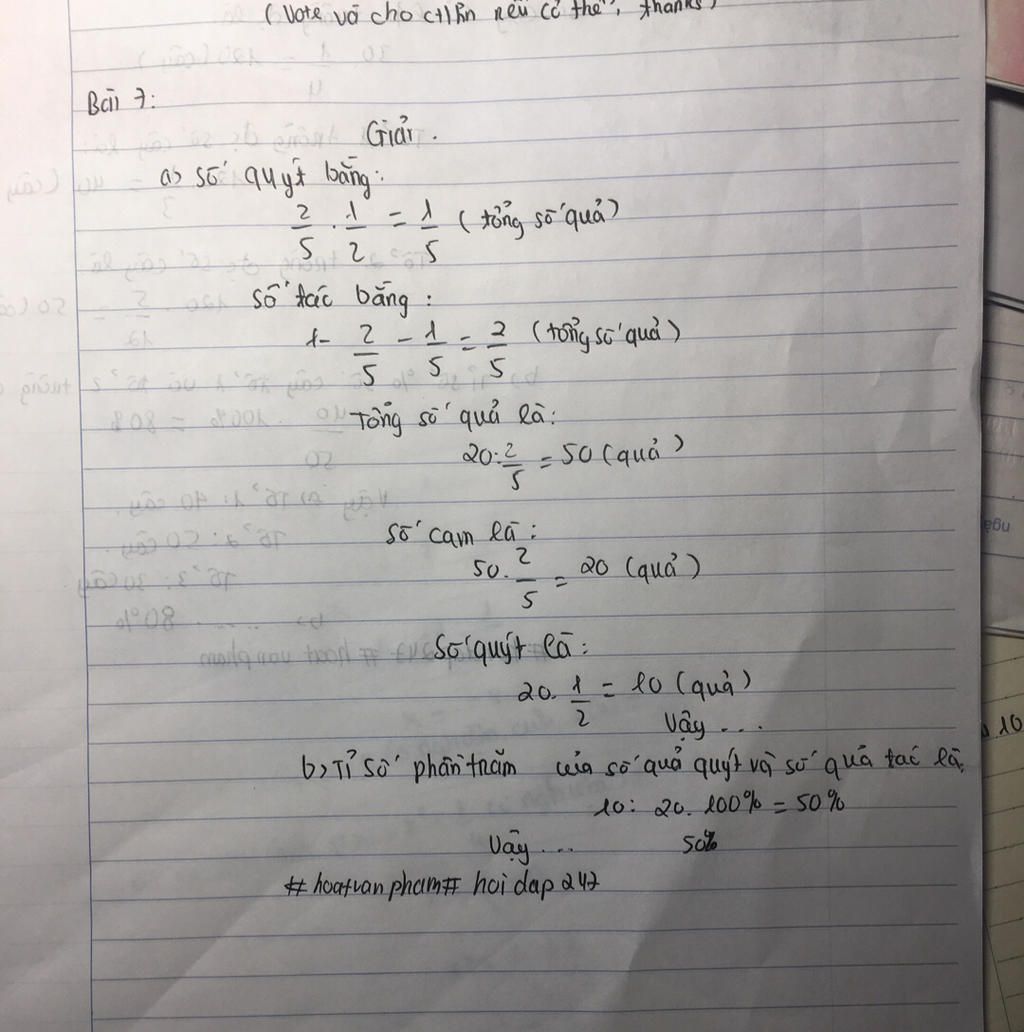 (Vote và cho ctlhn nếu có thể, thanks)
Bài 7:
Giải.
a) số quýt bằng:
2/5 . 1/2 = 1/5 (tổng số quả)
số tác bằng:
1 - 2/5 - 1/5 = 2/5 (tổng số quả)
Tổng số quả là:
20 : 2/5 = 50 (quả)
số cam là:
50 . 2/5 = 20 (quả)
Số quýt là:
20 . 1/2 = 10 (quả)
Vậy ...
b) Tỉ số phần trăm của số quả quýt và số quả tác là:
10 : 20 . 100% = 50%
Vậy ... 50%
#hoatvanpham# hoidap247
10